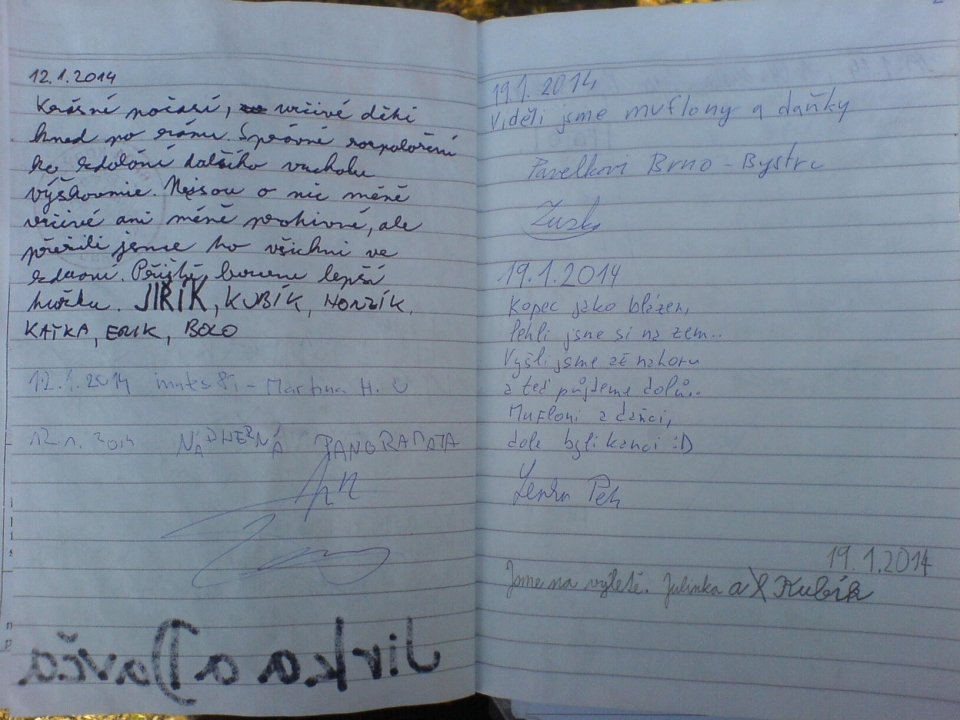 12.1.2014
Krásní počasí, vrčivé děti
hned po ránu. Správné rozpoložení
ke zdolání dalšího vrcholu
výškovnic. Nejsou o nic méně
vrčivé ani méně protivné, ale
přežili jsme ho všichni ve
zdraví. Příště, bereme lepší
hůlku. JIŘÍK, KUBÍK, HONZÍK,
KATKA, ERIK, BOLO
12.1.2014 - Martina H.
12.1.2014 NÁDHERNÁ PANORAMATA
Jirka a Davča
19.1.2014
Viděli jsme muflony a daňky
Pavelkovi Brno - Bystrc
Zuzka
19.1.2014
Kopec jako blázen,
lehli jsme si na zem..
Vyšli jsme až nahoru
a teď půjdeme dolů..
Mufloni a daňci,
dole byli kanci :D
Lenka Peh
19.1.2014
Jsme na výletě. Julinka a Kubík